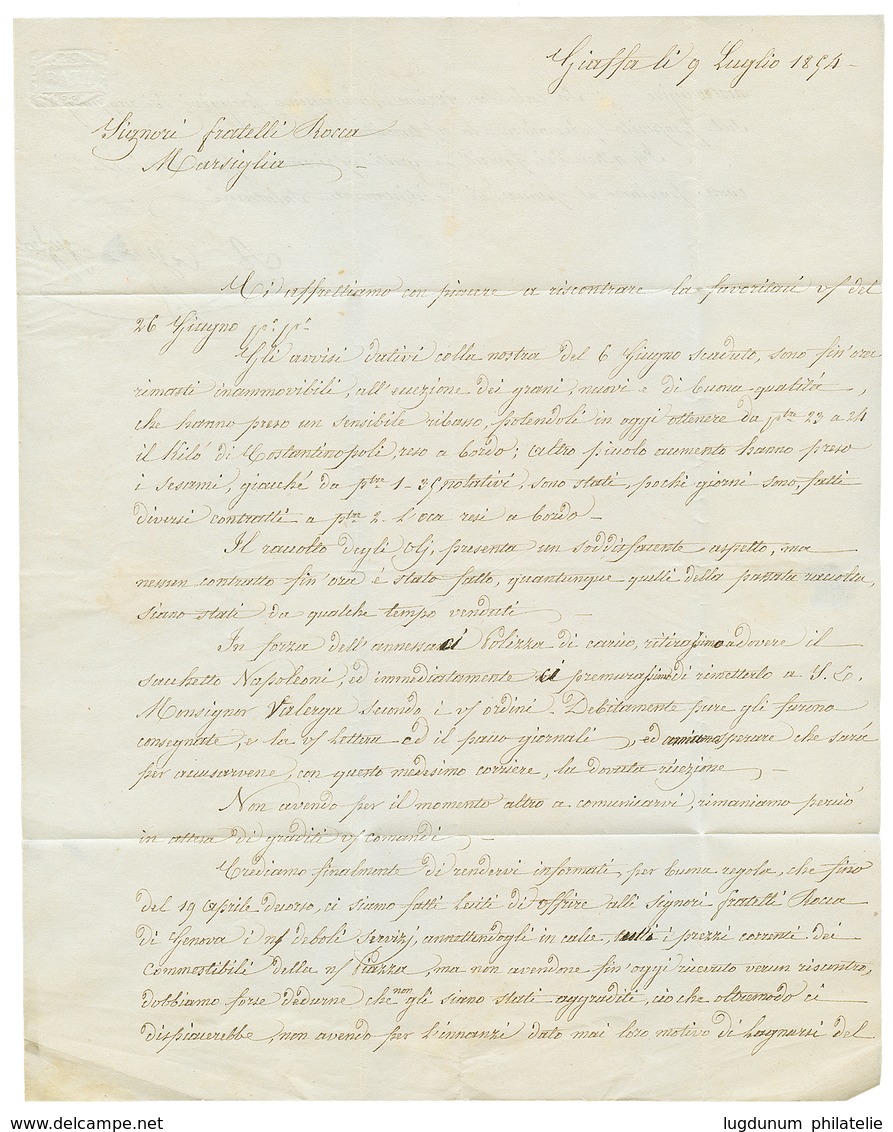 BATH
Giaffa li 9 Luglio 1854
Signori fratelli Rocca
Marsiglia
Ci affrettiamo con piacere a riscontrare la favoritaci v/ del
26 Giugno pº pº
Gli avvisi dativi colla nostra del 6 Giugno scaduto, sono fin'ora
rimasti inammovibili, all'eccezione dei grani, nuovi e di buona qualitá,
che hanno preso un sensibile ribasso, potendoli in oggi ottenere da ptre 23 a 24
il Kiló di Costantinopoli, reso a bordo; altro piccolo aumento hanno preso
i sesami, giacché da ptre 1-35 notativi, sono stati, pochi giorni sono, fatti
diversi contratti a ptre 2. l'oca resi a bordo
Il raccolto degli Olj, presenta un soddisfacente aspetto, ma
nessun contratto fin'ora é stato fatto, quantunque quelli della passata raccolta,
siano stati da qualche tempo venduti
In forza dell'annessaci Polizza di carico, ritirassimo a dovere il
sacchetto Napoleoni, ed immediatamente ci premurassimo di rimetterlo a S. E.
Monsignor Valerga secondo i v/ ordini. Debitamente pure gli furono
consegnate, e la v/ lettera ed il pacco giornali, ed amiamo sperare che sará
per accusarvene, con questo medesimo corriere, la dovuta ricezione
Non avendo per il momento altro a comunicarvi, rimaniamo perció
in attesa di graditi v/ comandi
Crediamo finalmente di rendervi informati, per buona regola, che fino
del 19 Aprile decorso, ci siamo fatti lesiti di offrire alli signori fratelli Rocca
di Genova i n/ deboli servizj, annettendogli in calce tutti i prezzi correnti dei
Commostibili della n/ Piazza, ma non avendone fin'oggi ricevuto verun riscontro,
dobbiamo forse dedurne che non gli siano stati aggraditi, ció che oltremodo ci
dispiacerebbe, non avendo per l'innanzi dato mai loro motivo di lagnarsi del
www.delcampe.net
lugdunum philatelie